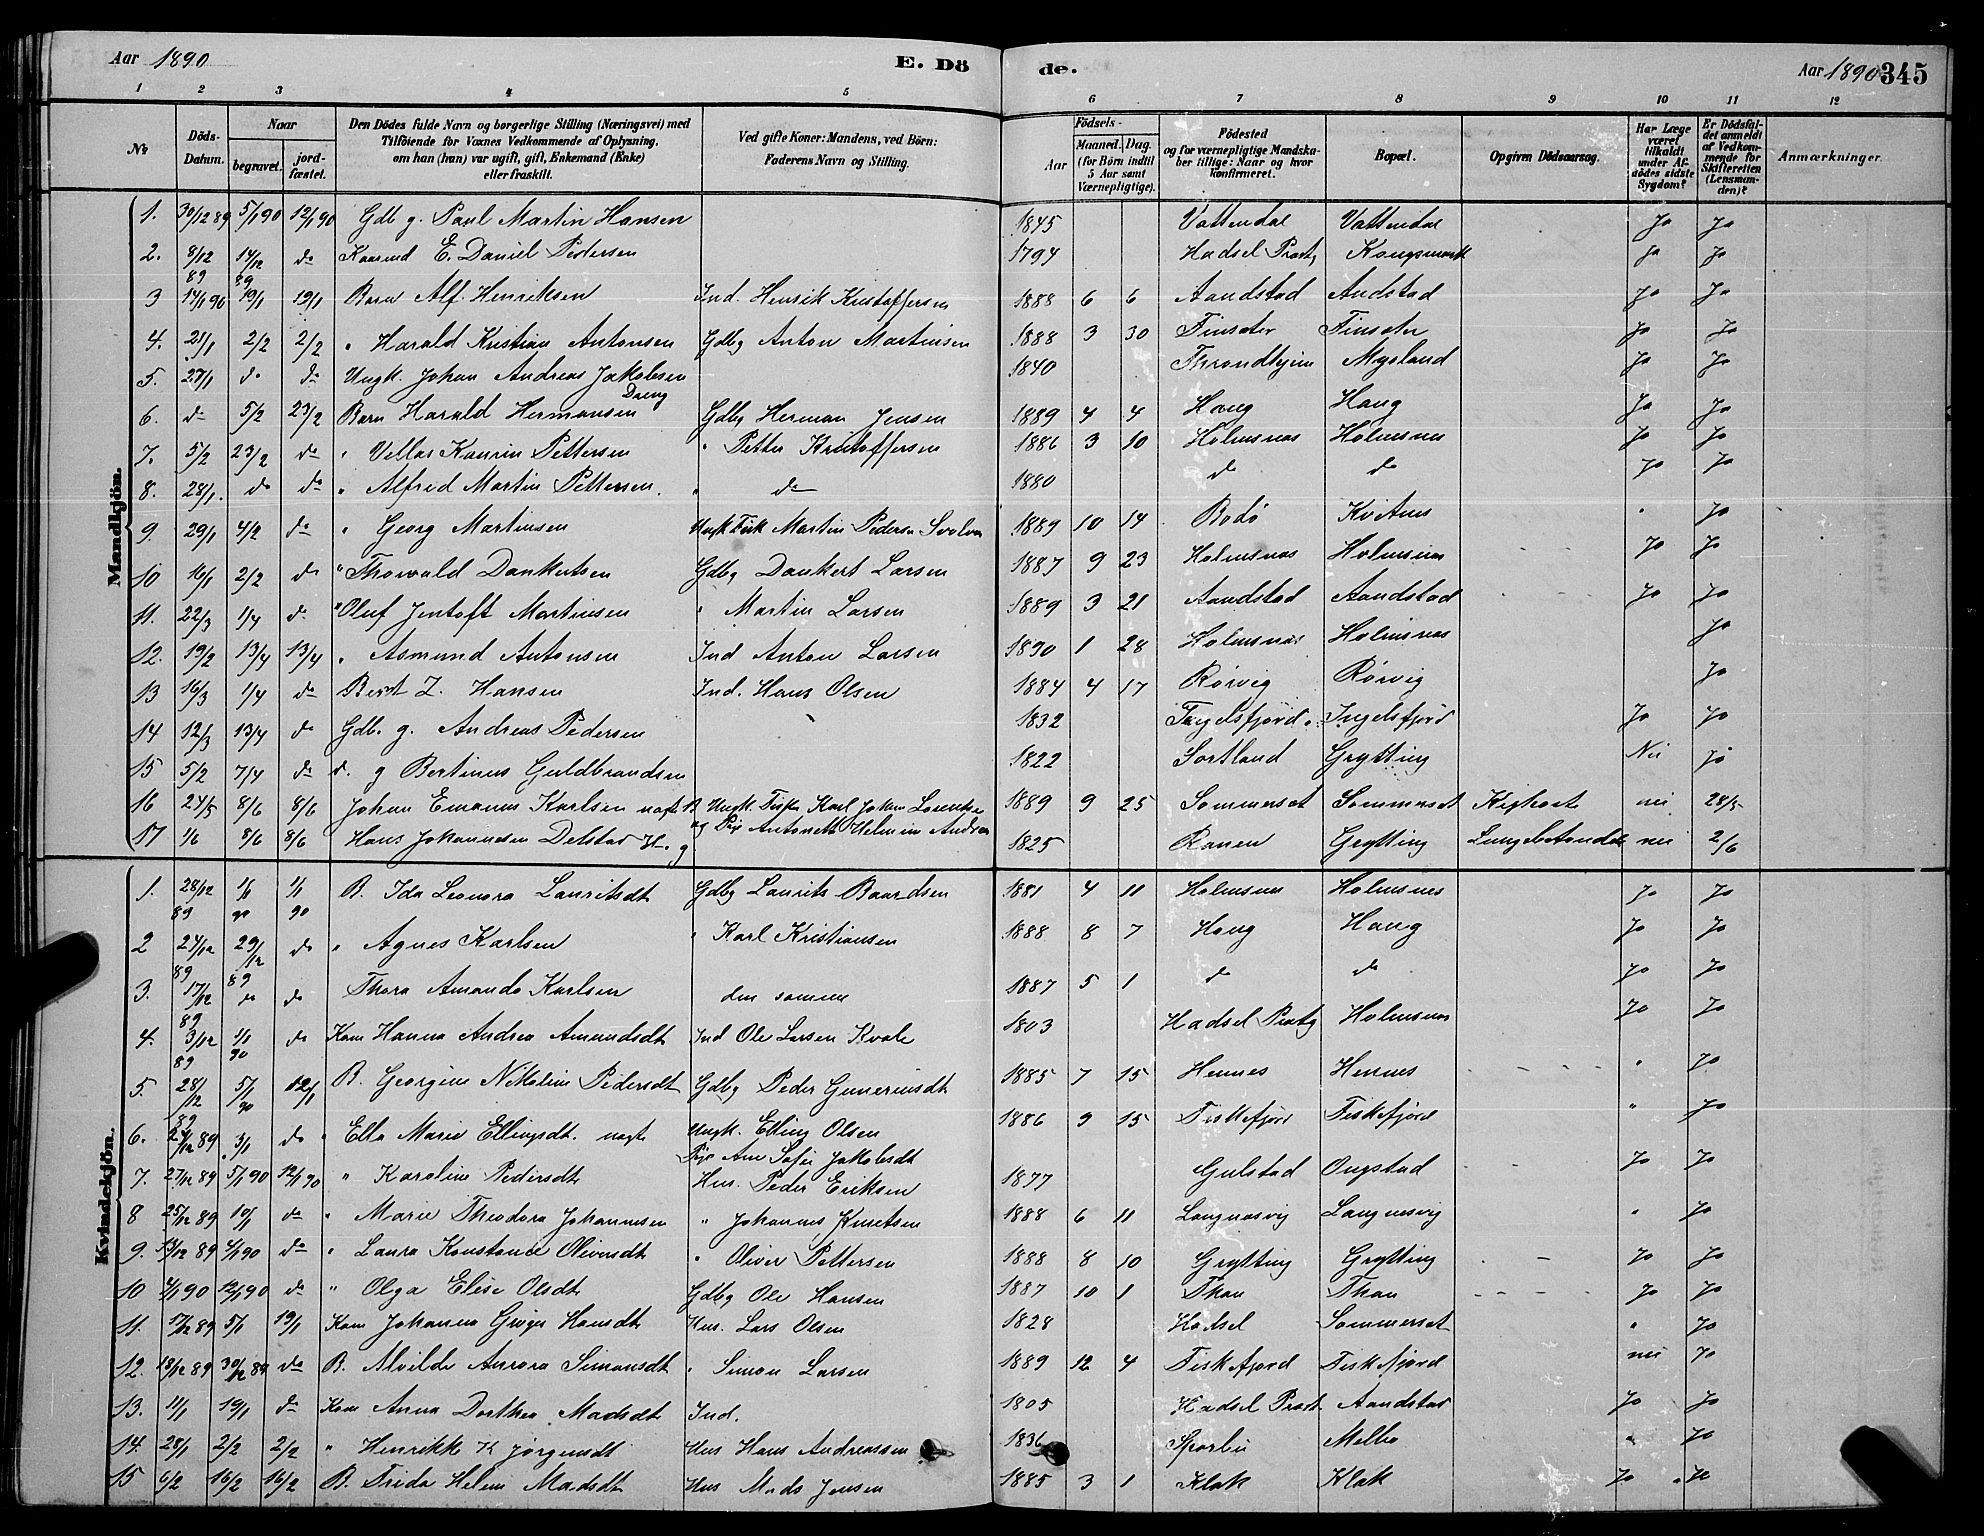 Aar 1890 E. Dö de. Aar 1890 345
1 2 3 4 5 6 7 8 9 10 11 12
No. Döds-Datum. Naar begravet. jord-fæstet. Den Dödes fulde Navn og borgerlige Stilling (Næringsvei) med Tilföiende for Voxnes Vedkommende af Oplysning, om han (hun) var ugift, gift, Enkemand (Enke) eller fraskilt. Ved gifte Koner: Mandens, ved Börn: Faderens Navn og Stilling. Födsels- Aar Maaned. Dag. (for Børn indtil 5 Aar samt Værnepligtige). Födested og for værnepligtige Mandskaber tillige: Naar og hvor konfirmeret. Bopæl. Opgiven Dödsaarsag. Har Læge været tilkaldt under Afdödes sidste Sygdom? Er Dödsfaldet anmeldt af Vedkommende for Skifteretten (Lensmanden)? Anmærkninger.
Mandkjön.
1. 30/12 89 5/1 90 12/1 90 Gdb g. Paul Martin Hansen 1845 Vattendal Vattendal Ja Ja
2. 8/12 89 14/12 89 do Kaarmd E. Daniel Pedersen 1794 Hadsel Prstg Kongsmark Ja Ja
3 14/1 90 19/1 19/1 Barn Alf. Henriksen Ind. Henrik Kristoffersen 1888 6 6 Aandstad Andstad Ja Ja
4. 21/1 2/2 2/2 " Harald Kristian Antonsen Gdbg Anton Martinsen 1888 3 30 Finsæter Finsæter Ja Ja
5. 27/1 do do Ungk. Johan Andreas Jakobsen 1840 Throndhjem Mysland Ja Ja
6. do 5/2 23/2 Barn Harald Hermansen Gdbg Herman Jensen 1889 4 4 Haug Haug Ja Ja
7. 5/2 23/2 do " Vellas Kaurin Pettersen " Petter Kristoffersen 1886 3 10 Holmsnes Holmsnes Ja Ja
8. 28/1. do do " Alfred Martin Pettersen. " do 1880 do do Ja Ja
9. 29/1 4/2 do " Georg Martinsen Ungk Fisk Martin Peders. Svolvær 1889 10 14 Bodö " Ja
10 16/1 2/2 do " Thorvald Dankertsen Gdbg Dankert Larsen 1887 9 23 Holmsnæs Holmsnæs Ja Ja
11. 22/3 1/4 do " Oluf Jentoft Martinsen " Martin Larsen 1889 3 21 Aandstad Aandstad Ja Ja
12. 19/2 13/4 13/4 " Asmund Antonsen Ind Anton Larsen 1890 1 28 Holmsnæs Holmsnæs Ja
13 16/3 1/4 do Bernt Z. Hansen Ind. Hans Olsen 1884 4 17 Rörvig Rörvig Ja
14 12/3 13/4 do Gdb. g. Andreas Pedersen 1832 Ingelsfjord Ingelsfjord Ja Ja
15 5/2 7/4 do do g Bertinus Guldbrandsen 1822 Sortland Grytting Nei ja
16 24/5 8/6 8/6 Johan Emanus Karlsen uægte B Ungk. Fisker Karl Johan Lorentse. 1889 9 25 Sommerset Sommerset Kighoste nei 28/5
og Pige Antonette Helmine Andrea
17 1/6 8/6 8/6 Hans Johannesen Delstad H. g 1825 Ranen Grytting Lungebetændelse nei 2/6
Kvindekjön.
1. 28/12 89 1/1 90 1/1 90 B. Ida Leonora Lauritsdt Gdbg Laurits Baardsen 1881 4 11 Holmsnes Holmsnes Ja Ja
2 24/12 89 29/12 89 do " Agnes Karlsen " Karl Kristiansen 1888 8 7 Haug Haug Ja Ja
3. 17/12 89 do do Thora Amanda Karlsen den samme 1887 5 1 do do Ja Ja
4. 3/12 89 1/1 90 do Kone Hanna Andrea Amundsdt Ind Ole Larsen Kvale 1803 Hadsel Prstg Holmsnæs Ja Ja
5. 28/12 89 5/1 90 12/1 B. Georgine Nikoline Pedersdt Gdbg Peder 1885 7 15 Hennes Hennes " Ja
6. 24/12 89 3/1 do " Ella Marie Ellingsdt. uægte Ungk. Elling Olsen 1886 9 15 Fiskefjord Fiskefjord " Ja
Pige Ane Sofie Jakobsdt
7. 27/12 89 5/1 90 12/1 90 " Karoline Pedersdt Hus. Peder Eriksen 1877 Gulstad Ongstad Ja Ja
8 25/12 89 10/1 do " Marie Theodora Johannesen " Johannes Knutsen 1888 6 11 Langnæsvig Langnesvig " Ja
9. 13/12 89 4/1 90 do " Laura Konstance Oliversdt " Oliver Pettersen 1888 8 10 Grytting Grytting Ja Ja
10 4/1 90 12/1 90 do " Olga Elise Olsdt Gdbg Ole Hansen 1887 10 1 Than Than Ja Ja
11. 17/12 89 5/1 19/1 Kone Johanna Hansdt Hus. Lars Olsen 1828 Hadsel Sommerset " Ja
12. 18/12 89 30/12 89 do B. Alvilde Aurora Simonsdt " Simon Larsen 1889 12 4 Fiskefjord Fiskefjord nei Ja
13. 11/1 19/1 do Kone Anna Dorthea Madsdt Ind. 1805 Hadsel Prest. Aandstad Ja Ja
14. 28/1 2/2 2/2 " Henrikke K Jörgensdt Hus Hans Andreassen 1836 Sparbu Melbo " Ja
15 6/2 16/2 16/2 B. Frida Helene Madsdt Hus Mads Jensen 1885 3 1 Klak Klak Ja Ja